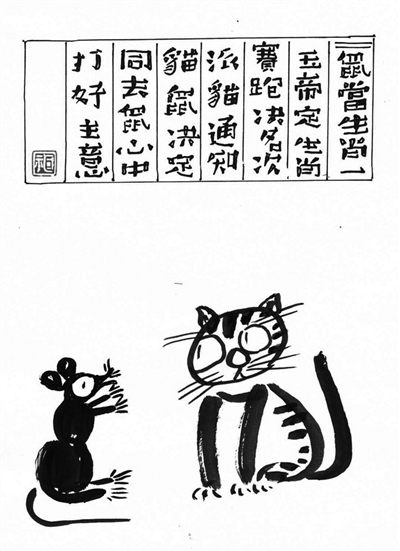 鼠當生肖一
玉帝定生肖
賽跑決名次
派貓通知
貓鼠决定
同去鼠心中
打好主意